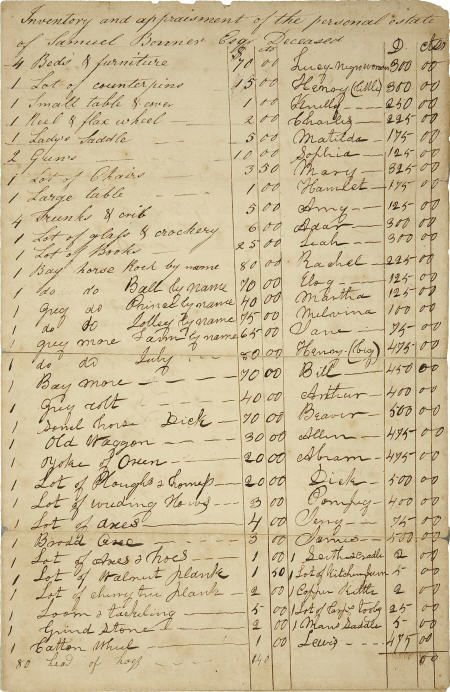 Inventory and appraisment of the personal estate
of Samuel Bonner Esq. Deceased
4 Beds & furniture 70 00 Lucy Negro woman 300 00
1 Lot of counterpins 45 00 Henry (little) 300 00
1 Small table & cover 1 00 250 00
1 Reel & flax wheel 2 00 Charles 225 00
1 Lady's Saddle 5 00 Matilda 175 00
2 Guns 10 00 Sophia 125 00
1 Lot of Chairs 3 50 Mary 325 00
1 Large table 1 00 Hamlet 175 00
4 Trunks & crib 5 00 Amy 125 00
1 Lot of glass & crockery 6 00 Adar 300 00
1 Lot of Books 25 00 Leah 300 00
1 Bay horse Rock by name 80 00 Rachel 225 00
1 do do Balt by name 70 00 125 00
1 grey do Prince by name 40 00 Martha 125 00
1 do do by name 75 00 Melvina 100 00
1 grey more by name 65 00 Jane 75 00
1 do do July 80 00 Henry (big) 475 00
1 Bay more 70 00 Bill 450 00
1 Grey colt 40 00 Arthur 400 00
1 Sorrel horse Dick 70 00 Beaver 500 00
1 Old Waggon 30 00 Allen 475 00
1 Yoke of Oxen 20 00 Abram 475 00
1 Lot of Ploughs & homes 20 00 Dick 500 00
1 Lot of weeding Hows 3 00 Pompey 400 00
1 Lot of axes 4 00 75 00
1 Broad axe 3 00 James 500 00
1 Lot of Axes & hoes 1 00 1 & Cradle 2 00
1 Lot of Walnut plank 1 50 1 Lot of Kitchen 5 00
1 Lot of cherrytree plank 2 00 1 Copper Kittle 2 00
1 Loom & tackeling 5 00 1 Lot of Carp. tools 25 00
1 Grind Stone 2 00 1 Mans Saddle 5 00
1 Cotton Wheel 1 00 Lewis 475 00
80 head of hogs 140 00